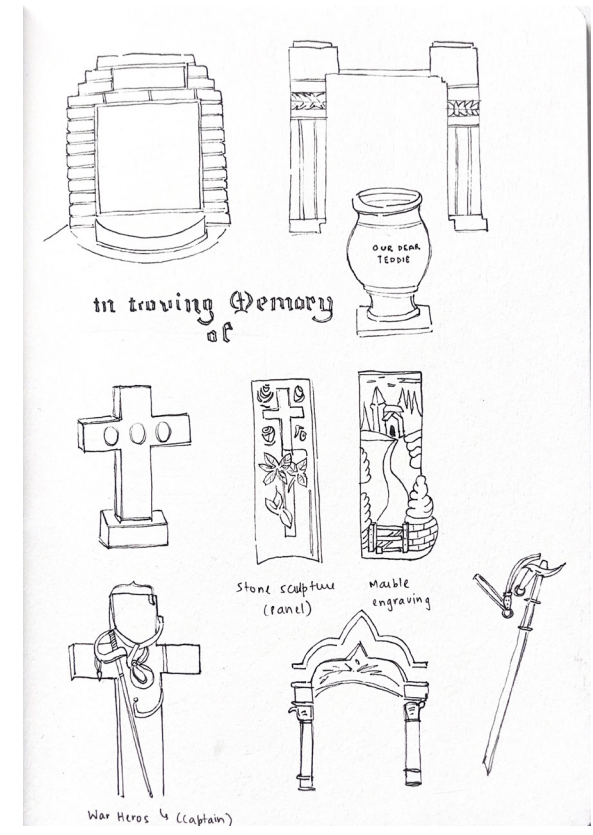 OUR DEAR
TEDDIE
In Loving Memory
of
Stone sculpture
(Panel)
Marble
engraving
War Heros ↳ (Captain)